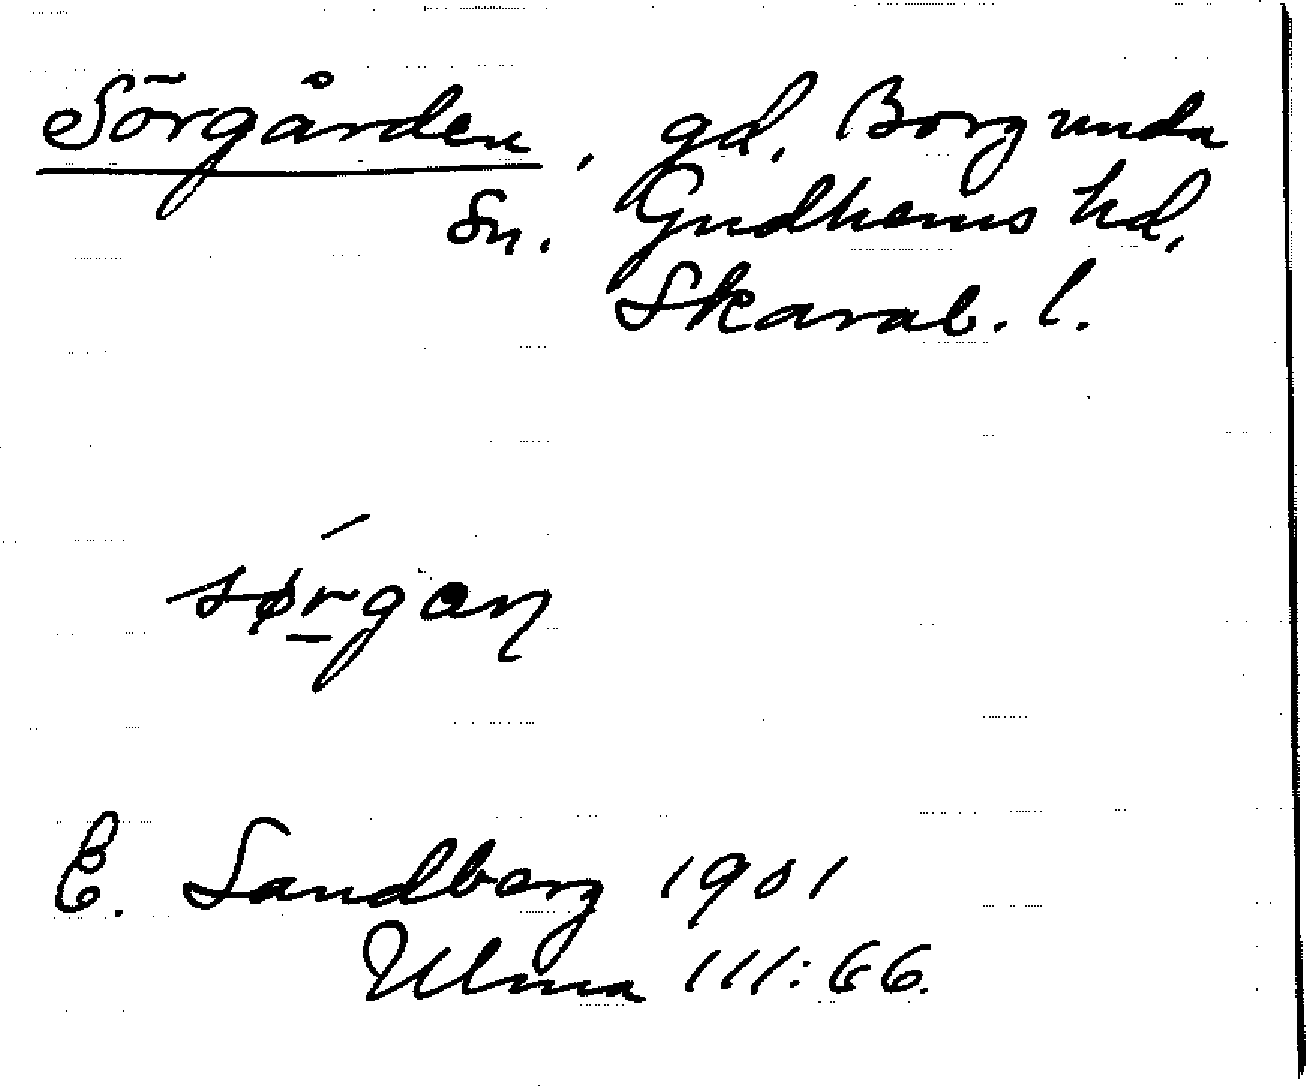 Sörgården, gd, Borgunda
sn. Gudhems hd,
Skarab. l.
sørgaɳ
E. Sandberg 1901
Ulma 111:66.